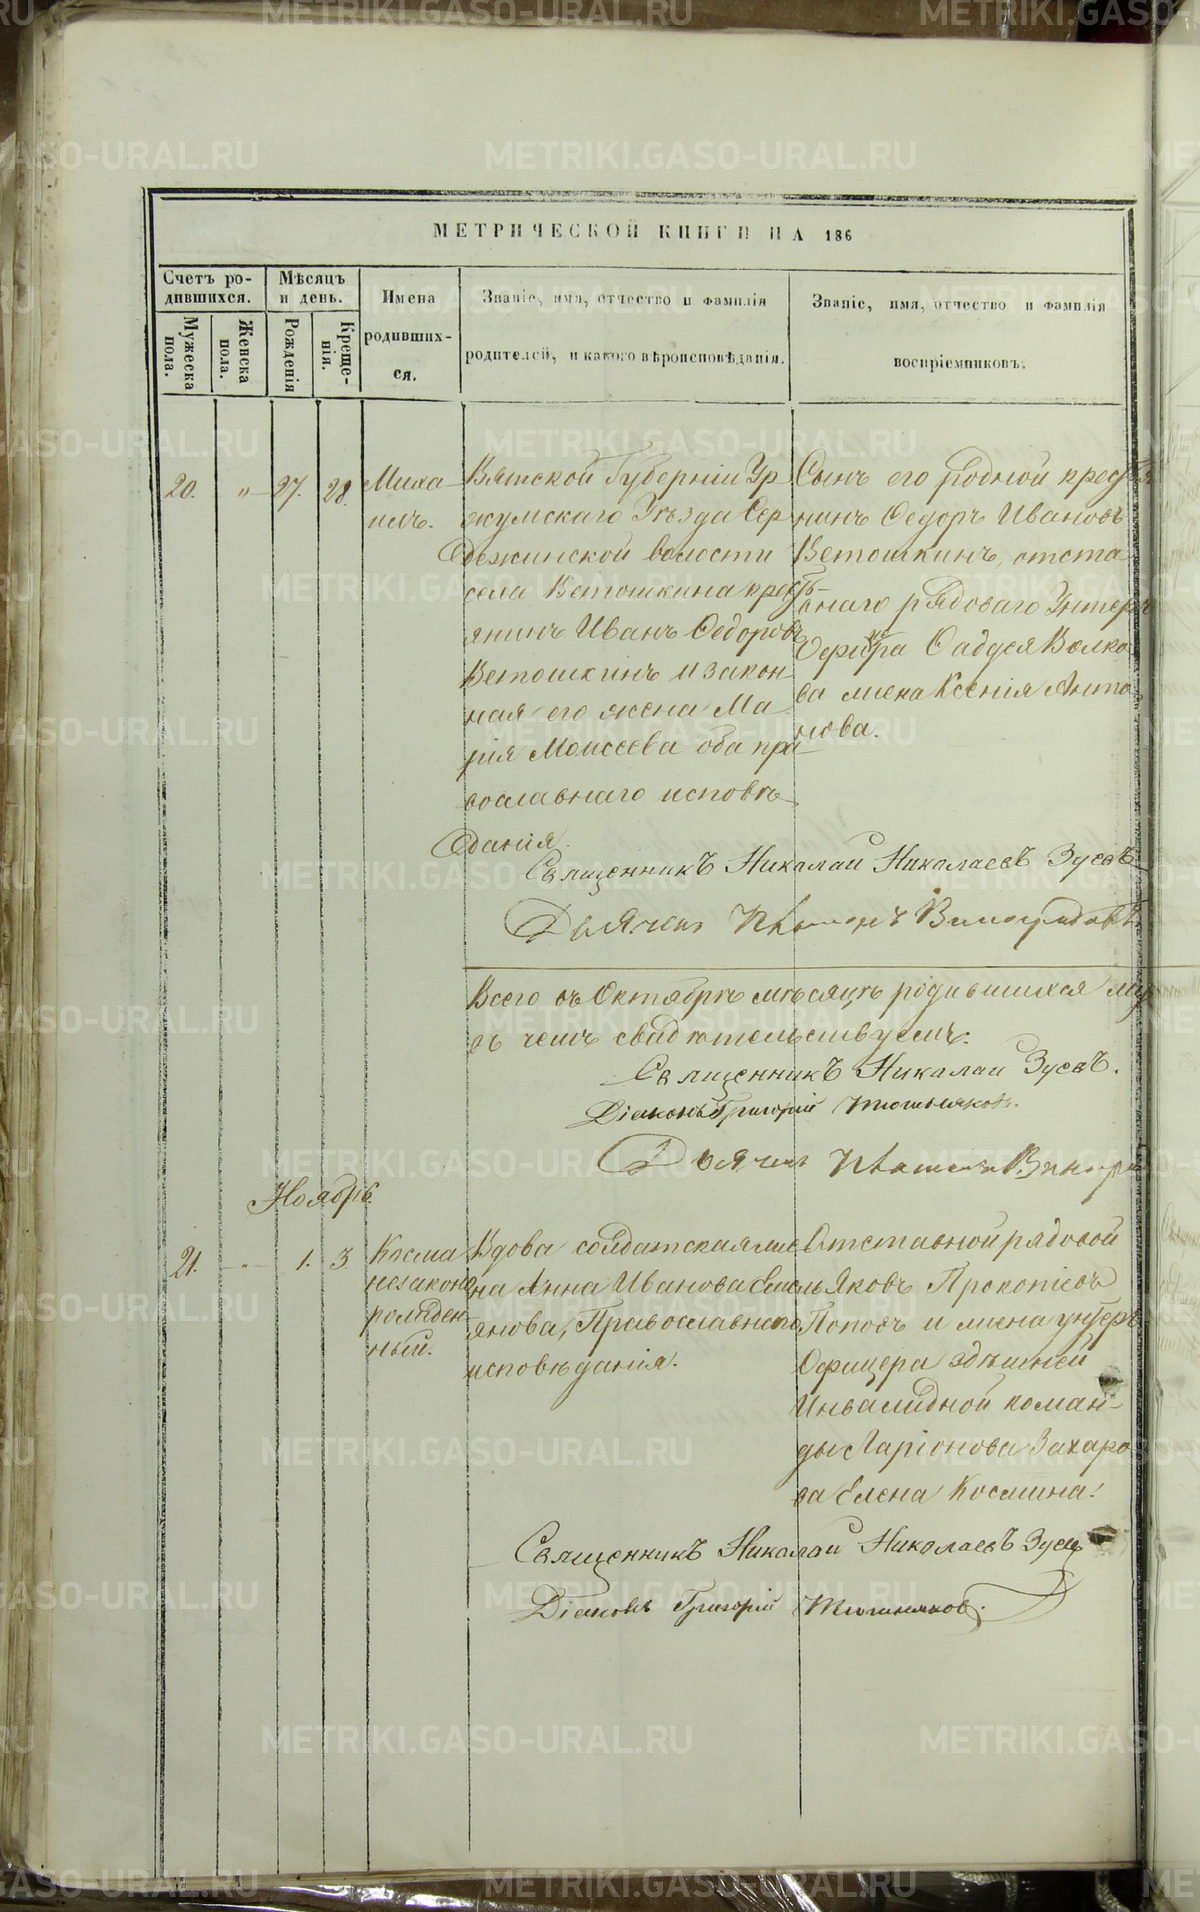 МЕТРИЧЕСКОЙ КНИГИ НА 186
Счетъ ро-
дившихся.
Мужеска
пола.
Женска
пола.
Мѣсяцъ
и день.
Рожденія
Креще-
нія.
Имена
родивших-
ся.
Званіе, имя, отчество и фамилія
родителей, и какого вѣроисповѣданія.
Званіе, имя, отчество и фамилія
воспріемниковъ.
20. " 27. 28.
Миха
илъ.
Вятской Губерніи Ур
жумскаго Уѣзда Сер
дежинской волости
села Ветошкина кресть-
янинъ Иванъ Ѳедоровъ
Ветошкинъ и закон
ная его жена Ма
рія Моисеева оба пра
вославнаго исповѣ
данія.
Сынъ его родной крестья
нинъ Ѳедоръ Ивановъ
Ветошкинъ, отста
внаго рядоваго Унтеръ
Офицера Ѳадея Волко
ва жена Ксенія Анто
нова.
Священникъ Николай Николаевъ Зуевъ
Дьячекъ Платонъ Виноградовъ
Всего въ Октябрѣ мѣсяцѣ родившихся му
въ чемъ свидѣтельствуемъ.
Священникъ Николай Зуевъ.
Діаконъ Григорій
Дьячекъ Платонъ Виногра
Ноябрь.
21. - " - 1. 3.
Косма
незаконо
рожден-
ный.
Вдова солдатская же
на Анна Иванова Емель
янова, Православнаго
исповѣданія.
Отставной рядовой
Яковъ Прокопіевъ
Поповъ и жена унтеръ
Офицера здѣшней
Инвалидной коман-
ды Ларіонова Захаро
ва Елена Космина.
Священникъ Николай Николаевъ Зуевъ
Діаконъ Григорій
METRIKI.GASO-URAL.RU